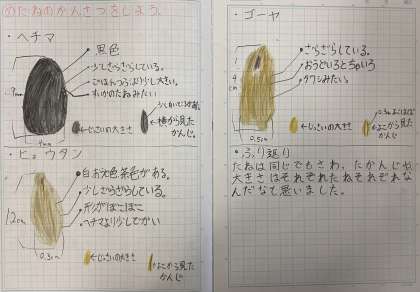 たねのかんさつをしよう。
・ヘチマ
黒色
少しざらざらしている。
ごはんつぶより少し大きい。
すいかのたねみたい
じっさいの大きさ
横から見たかんじ。
・ヒョウタン
茶色がある。
少しざらざらしている。
形がぼこぼこ
ヘチマより少しでかい
1.2cm
0.3cm
じっさいの大きさ
よこから見た
かんじ
・ゴーヤ
ざらざらしている。
おうどいろとちゃいろ
タワシみたい。
0.5cm
じっさいの大きさ
よこから見た
かんじ
・ふり返り
たねは同じでもさわったかんじや
大きさはそれぞれたねそれぞれな
んだなて思いました。